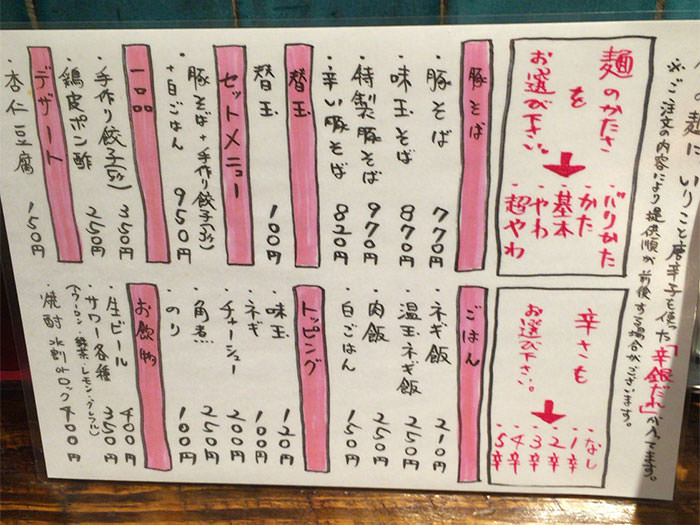 の麺に、いりこと唐辛子を使った「辛銀だれ」が入ってます。
※ご注文の内容により提供順が前後する場合がございます。
麺のかたさ
を
お選び下さい。
・バリかた
・かた
・基本
・やわ
・超やわ
辛さも
お選び下さい。
なし
1辛
2辛
3辛
4辛
5辛
豚そば
・豚そば 770円
・味玉そば 870円
・特製豚そば 970円
・辛い豚そば 820円
替玉
・替玉 100円
セットメニュー
・豚そば+手作り餃子(3ヶ)
+白ごはん 950円
一品
・手作り餃子(5ヶ) 350円
・鶏皮ポン酢 250円
デザート
・杏仁豆腐 150円
ごはん
・ネギ飯 210円
・温玉ネギ飯 250円
・肉飯 250円
・白ごはん 150円
トッピング
・味玉 120円
・ネギ 100円
・チャーシュー 200円
・角煮 250円
・のり 100円
お飲物
・生ビール 400円
・サワー各種 350円
(ウーロン・緑茶・レモン・グレフル)
・焼酎 水割orロック 400円